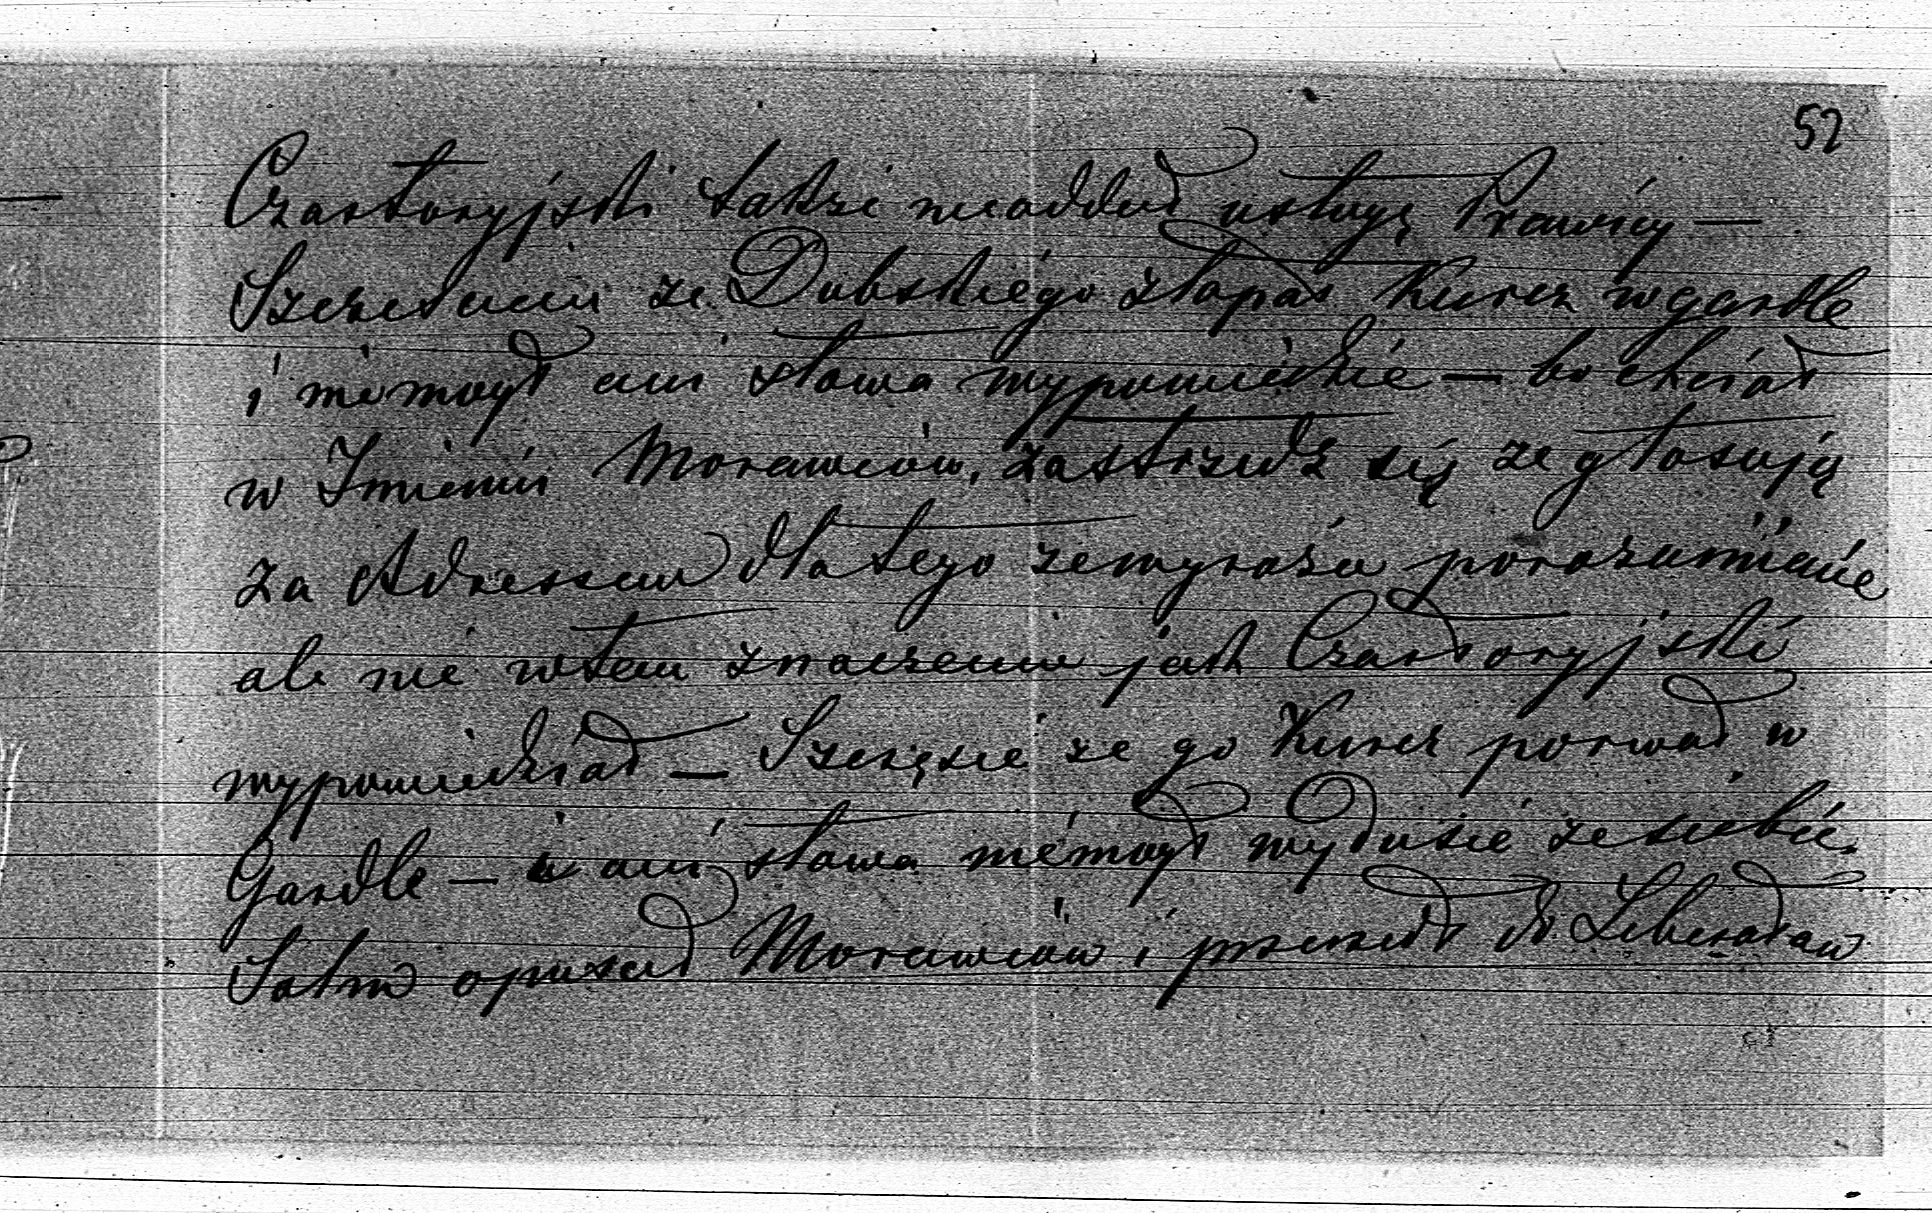 52
Czartoryjski także nieoddał usługę Prawicy —
Szczesciem ze Dubskiégo złapał Kurcz w gardle
i niemogł ani słowa wypowiedzieć — bo chciał
w Imieniu Morawców, zastrzedz się ze głosują
za Adressem dla tego ze wyraża porozumienie
ale nie wtem znaczeniu jak Czartoryjski
wypowiedział — Szczęscie ze go Kurcz porwał w
Gardle — i ani słowa niémogł wydusić ze siebie.
Salm opuscił Morawców i przeszedł do Liberałow